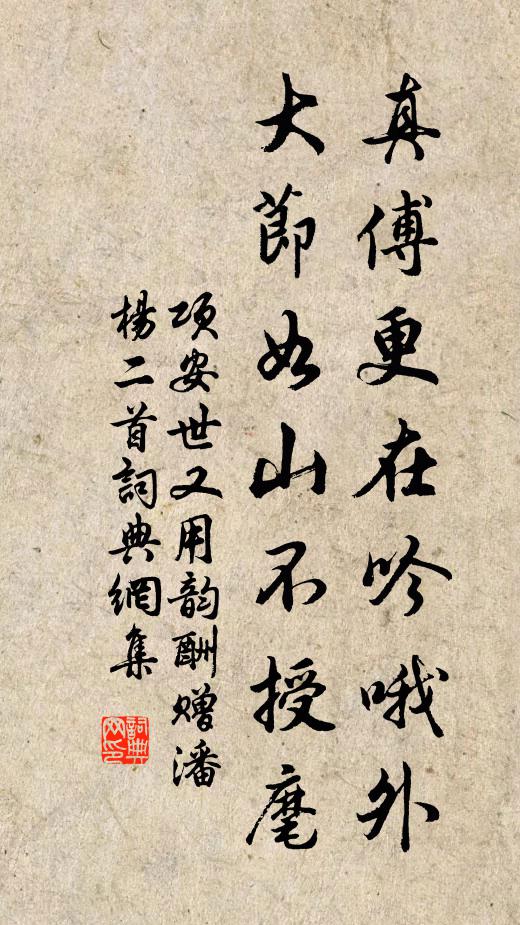 真傅更在吟哦外
大節如山不授麾
項安世又用韵酬贈潘
楊二首詞典網集
詞典网印